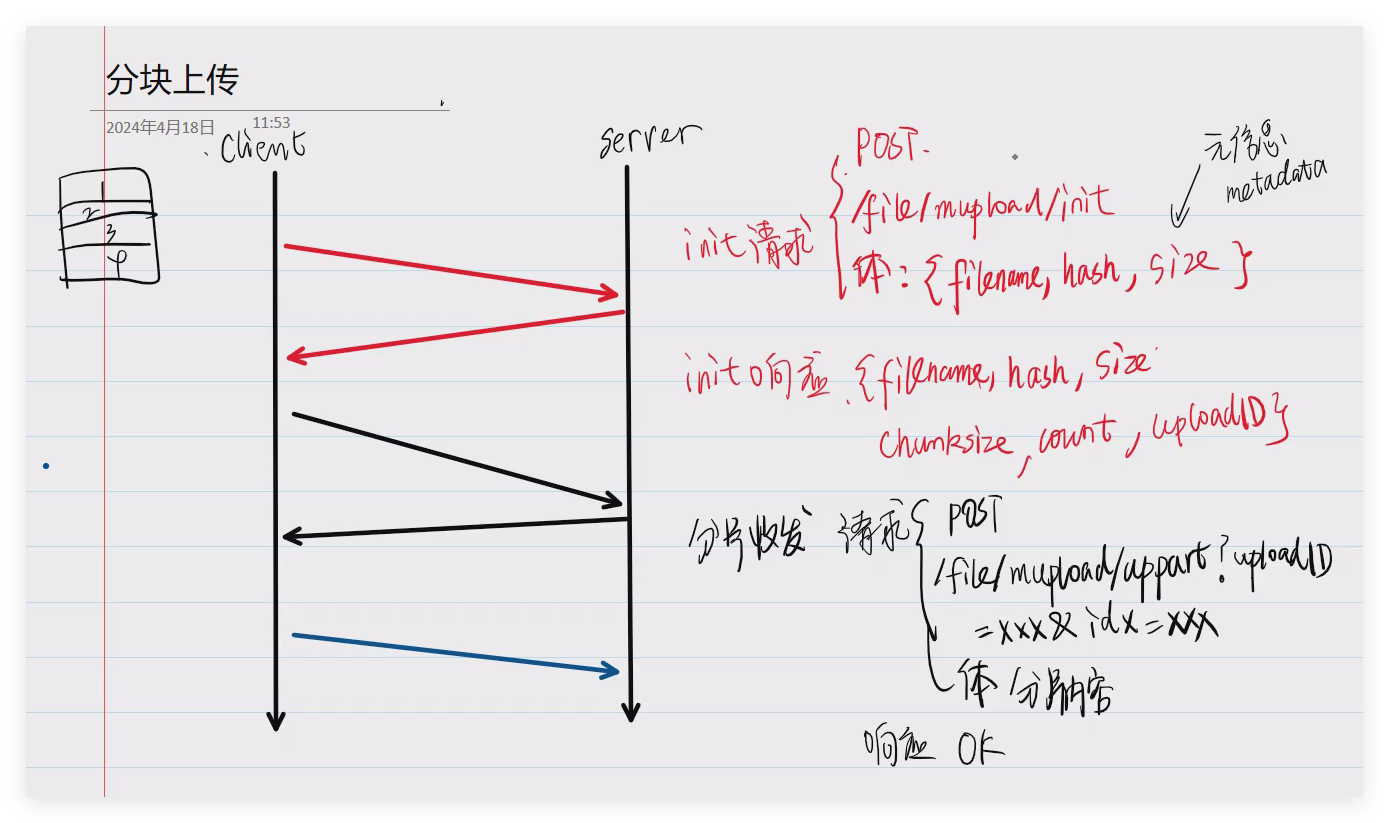 分块上传
2024年4月18日 11:53
client
server
1
2
3
4
init请求
POST
/file/mupload/init
体：{filename, hash, size}
元信息
metadata
init响应 {filename, hash, size
chunksize, count, uploadID}
分片收发 请求 POST
/file/mupload/uppart?uploadID
=xxx&idx=xxx
体 分片内容
响应 OK